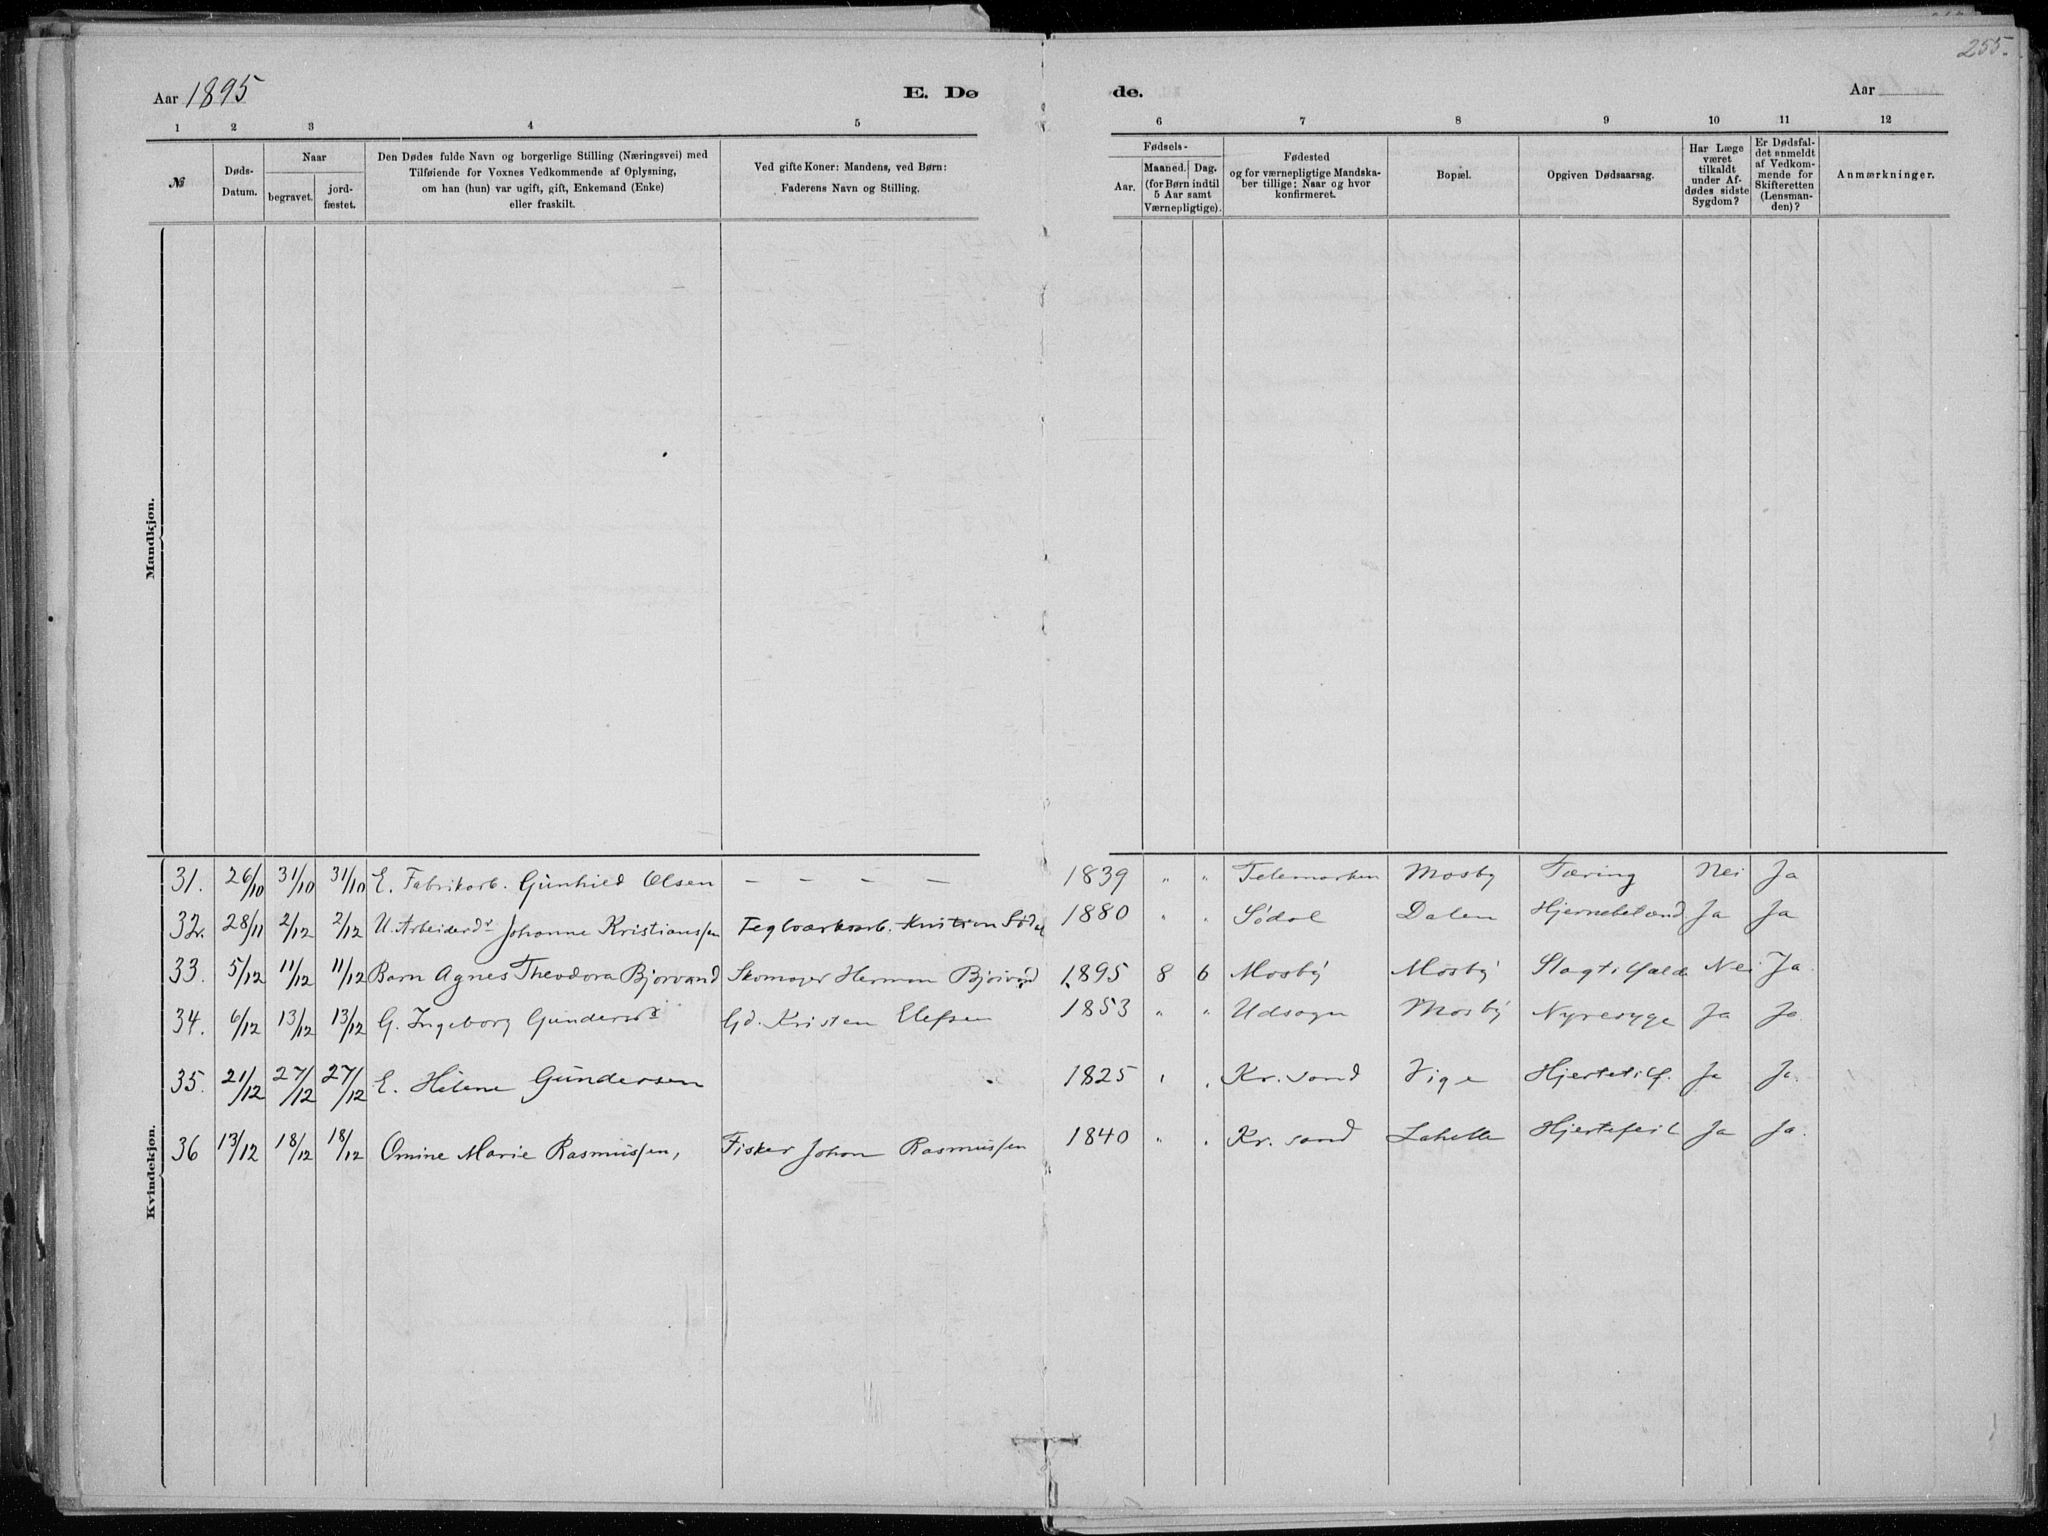 255.
Aar 1895 E. Dø de. Aar
1 2 3 4 5 6 7 8 9 10 11 12
№
Døds-Datum.
Naar
begravet.
jord-fæstet.
Den Dødes fulde Navn og borgerlige Stilling (Næringsvei) med
Tilføiende for Voxnes Vedkommende af Oplysning,
om han (hun) var ugift, gift, Enkemand (Enke)
eller fraskilt.
Ved gifte Koner: Mandens, ved Børn:
Faderens Navn og Stilling.
Fødsels-
Aar.
Maaned. Dag.
(for Børn indtil
5 Aar samt
Værnepligtige).
Fødested
og for værnepligtige Mandska-
ber tillige: Naar og hvor
konfirmeret.
Bopæl.
Opgiven Dødsaarsag.
Har Læge
været
tilkaldt
under Af-
dødes sidste
Sygdom?
Er Dødsfal-
det anmeldt
af Vedkom-
mende for
Skifteretten
(Lensman-
den)?
Anmærkninger.
Mandkjøn.
Kvindekjøn.
31. 26/10 31/10 31/10 E. Fabrikarb. Gunhild Olsen — — — — 1839 " " Telemarken Mosby Tæring Nei Ja
32. 28/11 2/12 2/12 U. Arbeiderd. Johanne Kristianssen Teglværksarb. Kristian Sødal 1880 " " Sødal Dalen Hjernebetænd. Ja Ja
33. 5/12 11/12 11/12 Barn Agnes Theodora Bjorvand Skomager Herman Bjorvand 1895 8 6 Mosby Mosby Slagtilfælde Nei Ja.
34. 6/12 13/12 13/12 G. Ingeborg Gundersd. Gd. Kristen Elefsen 1853 " " Udsogn Mosby Nyresyge Ja Ja
35. 21/12 27/12 27/12 E. Helene Gundersen 1825 " " Kr.sand Vige Hjertetilf. Ja Ja.
36 13/12 18/12 18/12 Omine Marie Rasmussen, Fisker Johan Rasmussen 1840 " " Kr.sand Lahelle Hjertefeil Ja Ja.